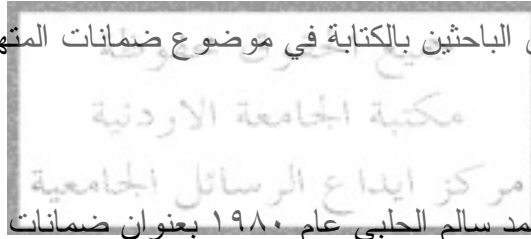 الباحثين بالكتابة في موضوع ضمانات
جميع الحقوق محفوظة
مكتبة الجامعة الاردنية
مركز ايداع الرسائل الجامعية
سالم الحلبي عام ١٩٨٠ بعنوان ضمانات